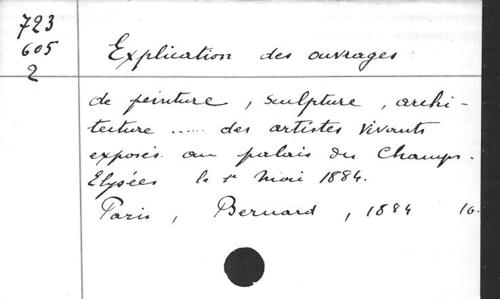 723
605
2
Explication des ouvrages
de peinture, sculpture, archi-
tecture ..... des artistes vivants
exposés au palais des Champs-
Elysées le 1er mai 1884.
Paris, Bernard, 1884 16.